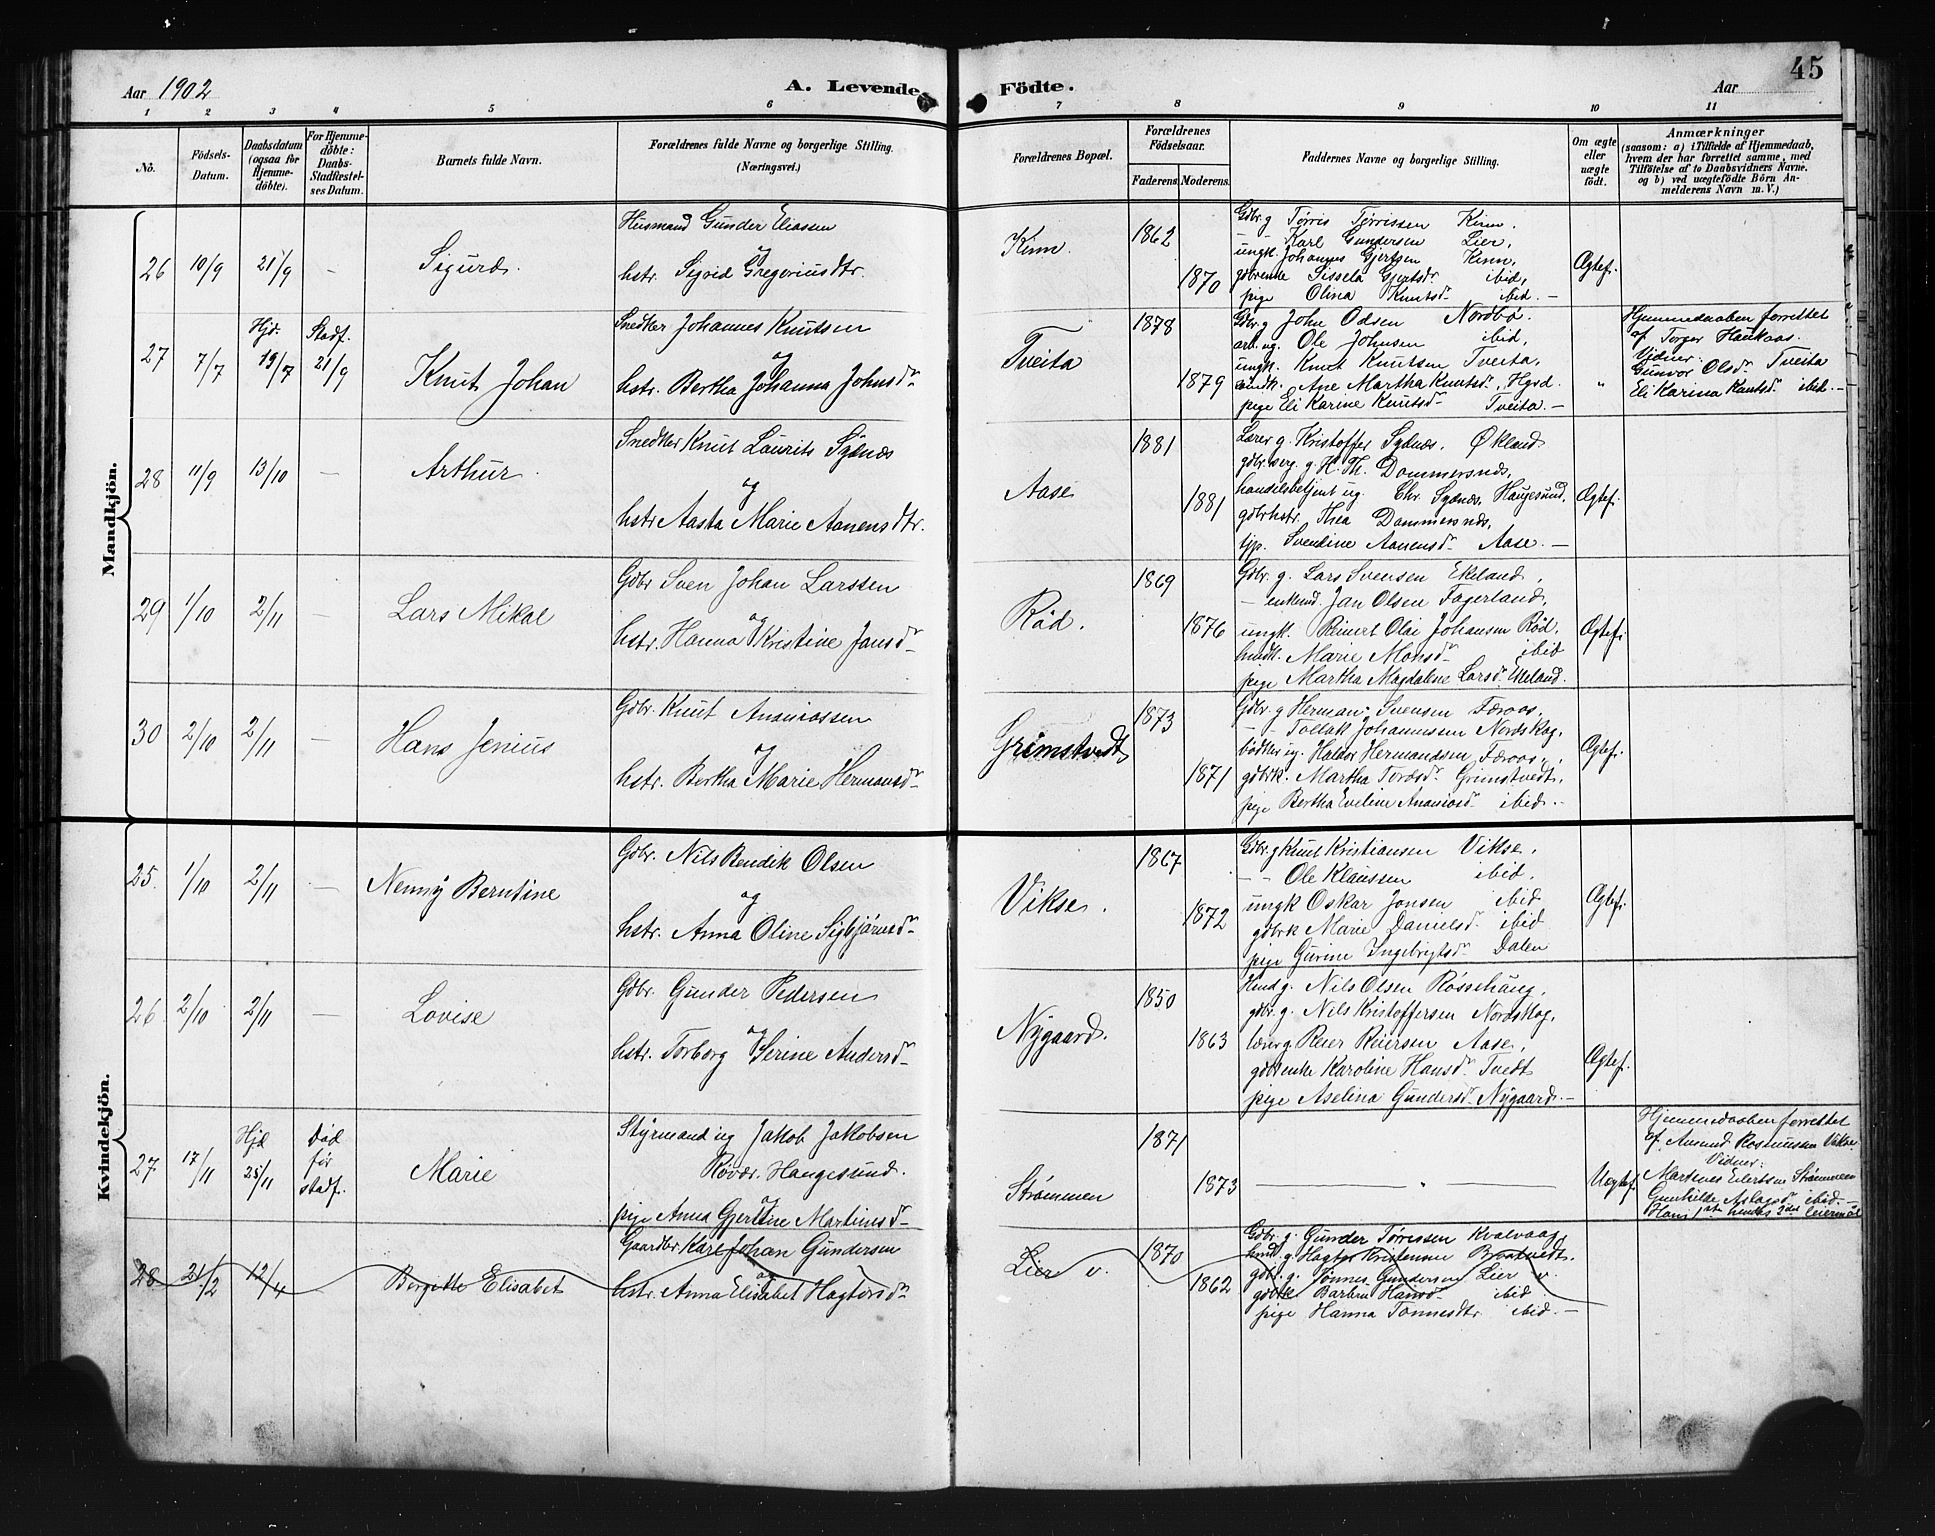 45
Aar 1902
A. Levende Födte.
Aar
1 2 3 4 5 6 7 8 9 10 11
No.
Födsels-
Datum.
Daabsdatum
(ogsaa for
Hjemme-
döbte).
For Hjemme-
döbte:
Daabs-
Stadfæstel-
ses Datum.
Barnets fulde Navn.
Forældrenes fulde Navne og borgerlige Stilling.
(Næringsvei.)
Forældrenes Bopæl.
Forældrenes
Födselsaar.
Faderens. Moderens.
Faddernes Navne og borgerlige Stilling.
Om ægte
eller
uægte
födt.
Anmærkninger
(saasom: a) i Tilfælde af Hjemmedaab,
hvem der har forrettet samme, med
Tilföielse af to Daabsvidners Navne,
og b) ved uægtefödte Börn An-
melderens Navn m. V.)
Mandkjön.
26 10/9 21/9 — Sigurd.
Husmand Gunder Eliassen
og
hstr. Sigrid Gregoriusdtr.
Kinn.
1862
1870
Gdbr. g Tørris Tørrissen Kinn.
— - Karl Gundersen Lier,
ungk. Johannes Gjertsen Kinn,
gdbrenke Sissela Gjertsdr ibid,
pige Olina Knutsd. ibid. —
Ægtef.
27 7/7 Hjd. 19/7 Stadf. 21/9 Knut Johan
Snedker Johannes Knutsen
og
hstr. Bertha Johanna Johnsdr
Tveita
1878
1879
Gdbr. g John Odsen Nordbø.
arb. ug. Ole Johnsen ibid,
ungk. Knut Knutsen Tveita,
Ane Martha Knutsdr,
pige Eli Karine Knutsdr Tveita. —
"
Hjemmedaaben forrettet
af Torger Haukaas.
Vidner:
Gunvor Olsdr Tveita
Eli Karina Knutsdr ibid. —
28 11/9 13/10 — Arthur.
Snedker Knut Laurits Sydnes
og
hstr. Aasta Marie Aanensdtr.
Aase
1881
1881
Lærer g. Kristoffer Sydnes, Økland
gdbr. serg. g. H. Th. Dommersnes,
handelsbetjent ug Chr. Sydnes, Haugesund.
gdbrhstr. Thea Dommersnes,
tjp. Svendine Aanensdr Aase. —
Ægtef.
29 1/10 2/11 — Lars Mikal
Gdbr Sven Johan Larssen
og
hstr. Hanna Kristine Jansdr
Rød.
1869
1876
Gdbr. g. Lars Svensen Ekeland,
— enkem. Jan Olsen Fagerland,
ungk. Reinert Olai Johansen Rød,
hmdk. Marie Monsdr ibid
pige Martha Magdalene Larsdr Ekeland.
Ægtef.
30 2/10 2/11 — Hans Jenius
Gdbr. Knut Ananiassen
og
hstr. Bertha Marie Hermansdr
Grimstvedt
1873
1871
Gdbr. g Herman Svensen Færaas,
— - Tollak Johannessen Nordskog,
bødker ug. Haldor Hermandsen Færaas,
gdbrk. Martha Toresdr Grimstvedt,
pige Bertha Eveline Ananiasdr ibid. —
Ægtef.
Kvindekjön.
25. 1/10 2/11 — Nenny Berntine
Gdbr. Nils Bendik Olsen
og
hstr. Anna Oline Sigbjørnsdr
Vikse.
1867
1872
Gdbr. g Knut Kristiansen Vikse,
— - Ole Klaussen ibid,
ungk Oskar Jonsen ibid
gdbrk Marie Danielsd. ibid
pige Gurine Ingebrigtsdr Dalen
Ægtef.
26 2/10 2/11 — Lovise
Gdbr. Gunder Pedersen
og
hstr. Torborg Serine Andersdr
Nygaard.
1850
1863
Hmd g. Nils Olsen Røssehaug,
gdbr. g. Nils Kristoffersen Nordskog,
lærer g. Reier Reiersen Aase,
gdbrenke Karoline Hansdr Tvedt
pige Aselina Gundersdr Nygaard. —
Ægtef.
27. 17/11 Hjd 25/11 Død før stadf. Marie
Styrmand ug Jakob Jakobsen
Røvær. Haugesund.
og
pige Anna Gjertine Martinsdr
Strømmen
1871
1873
— " —
Uægtef.
Hjemmedaaben forrettet
af Amund Rasmussen Vikse
Vidner:
Martenes Eilertsen Strømmen
Gunhilde Aslagsdr ibid. —
Hans 1ste hendes 3die leiermål
28 21/2 12/4 Bergitte Elisabet
Gaardbr Karl Johan Gundersen
og
hstr. Anna Elisabet Hagtorsdr
Lier v.
1870
1862
Gdbr. g. Gunder Tørrissen Kvalvaag,
hmd. g Hagtor Kristensen Bratvedt.
gdbr. g. Tønnes Gundersen Lier v.
gdbrk Barbru Hansdr ibid
pige Hanna Tønnesdtr. ibid. —